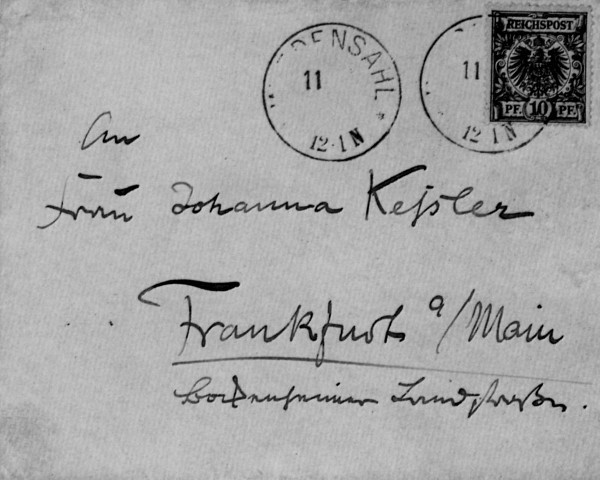 REICHSPOST
PF. 10 PF.
DENSAHL
11
12-1N
11
12 1N
An
Frau Johanna Keßler
Frankfurt a/Main
Bockenheimer Landstraße.